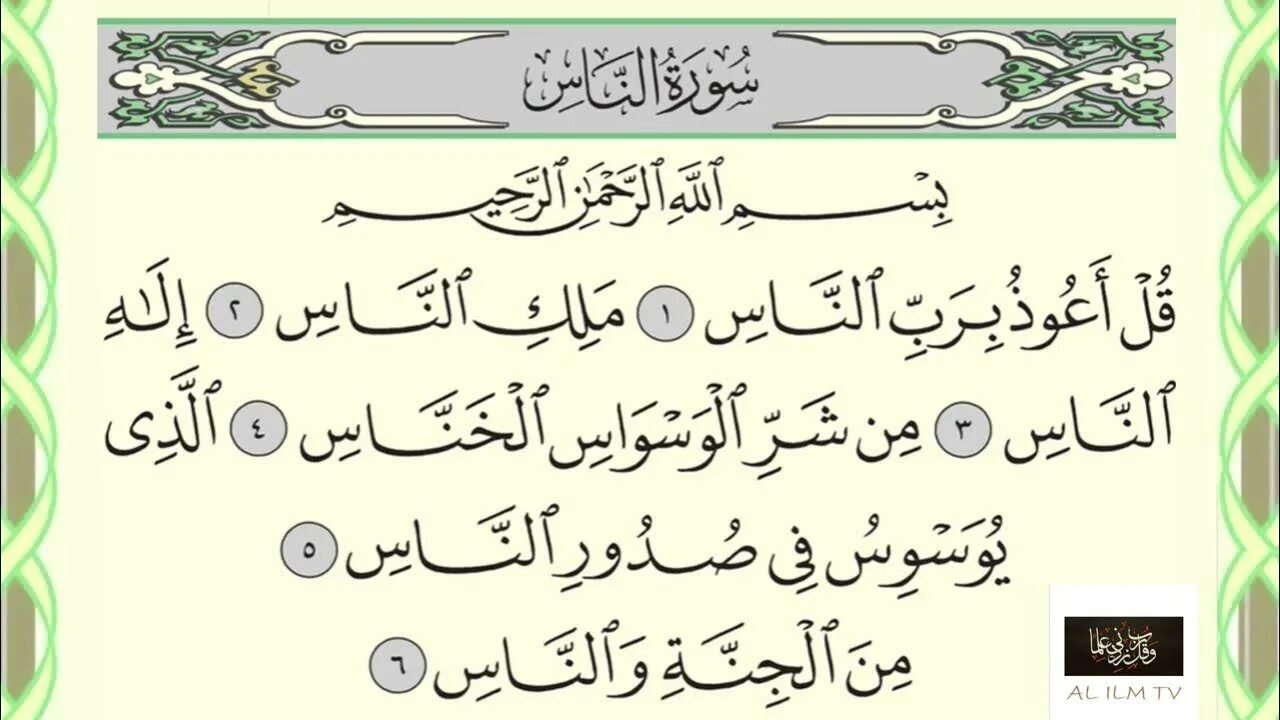 سُورَةُ النَّاسِ
بِسْمِ ٱللَّهِ ٱلرَّحْمَٰنِ ٱلرَّحِيمِ
قُلْ أَعُوذُ بِرَبِّ ٱلنَّاسِ ١ مَلِكِ ٱلنَّاسِ ٢ إِلَٰهِ
ٱلنَّاسِ ٣ مِن شَرِّ ٱلْوَسْوَاسِ ٱلْخَنَّاسِ ٤ ٱلَّذِى
يُوَسْوِسُ فِى صُدُورِ ٱلنَّاسِ ٥
مِنَ ٱلْجِنَّةِ وَٱلنَّاسِ ٦
وقل رب زدني علما
AL ILM TV